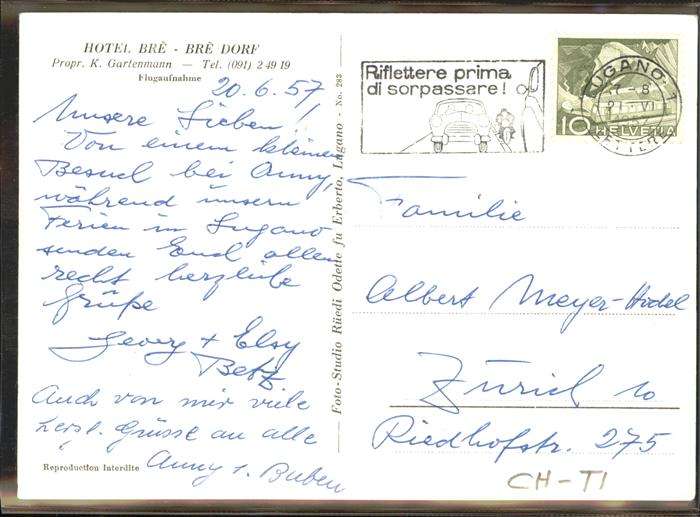 HOTEL BRÈ - BRÈ DORF
Propr. K. Gartenmann — Tel. (091) 2 49 19
Flugaufnahme
20.6.57
Unsere Lieben!
Von einem kleinen
Besuch bei Anny,
während unsern
Ferien in Lugano
senden Euch allen
recht herzliche
Grüße
Georg + Elsy
Betz
Auch von mir viele
herzl. Grüsse an alle
Anny s. Buben
Reproduction Interdite
Foto-Studio Rüedi Odette fu Erberto, Lugano - No. 283
Riflettere prima
di sorpassare!
LUGANO 1
7-8
21.VI
1957
LETTERE
10 HELVETIA
Familie
Albert Meyer-Hodel
Zürich 10
Riedhofstr. 275
CH-TI